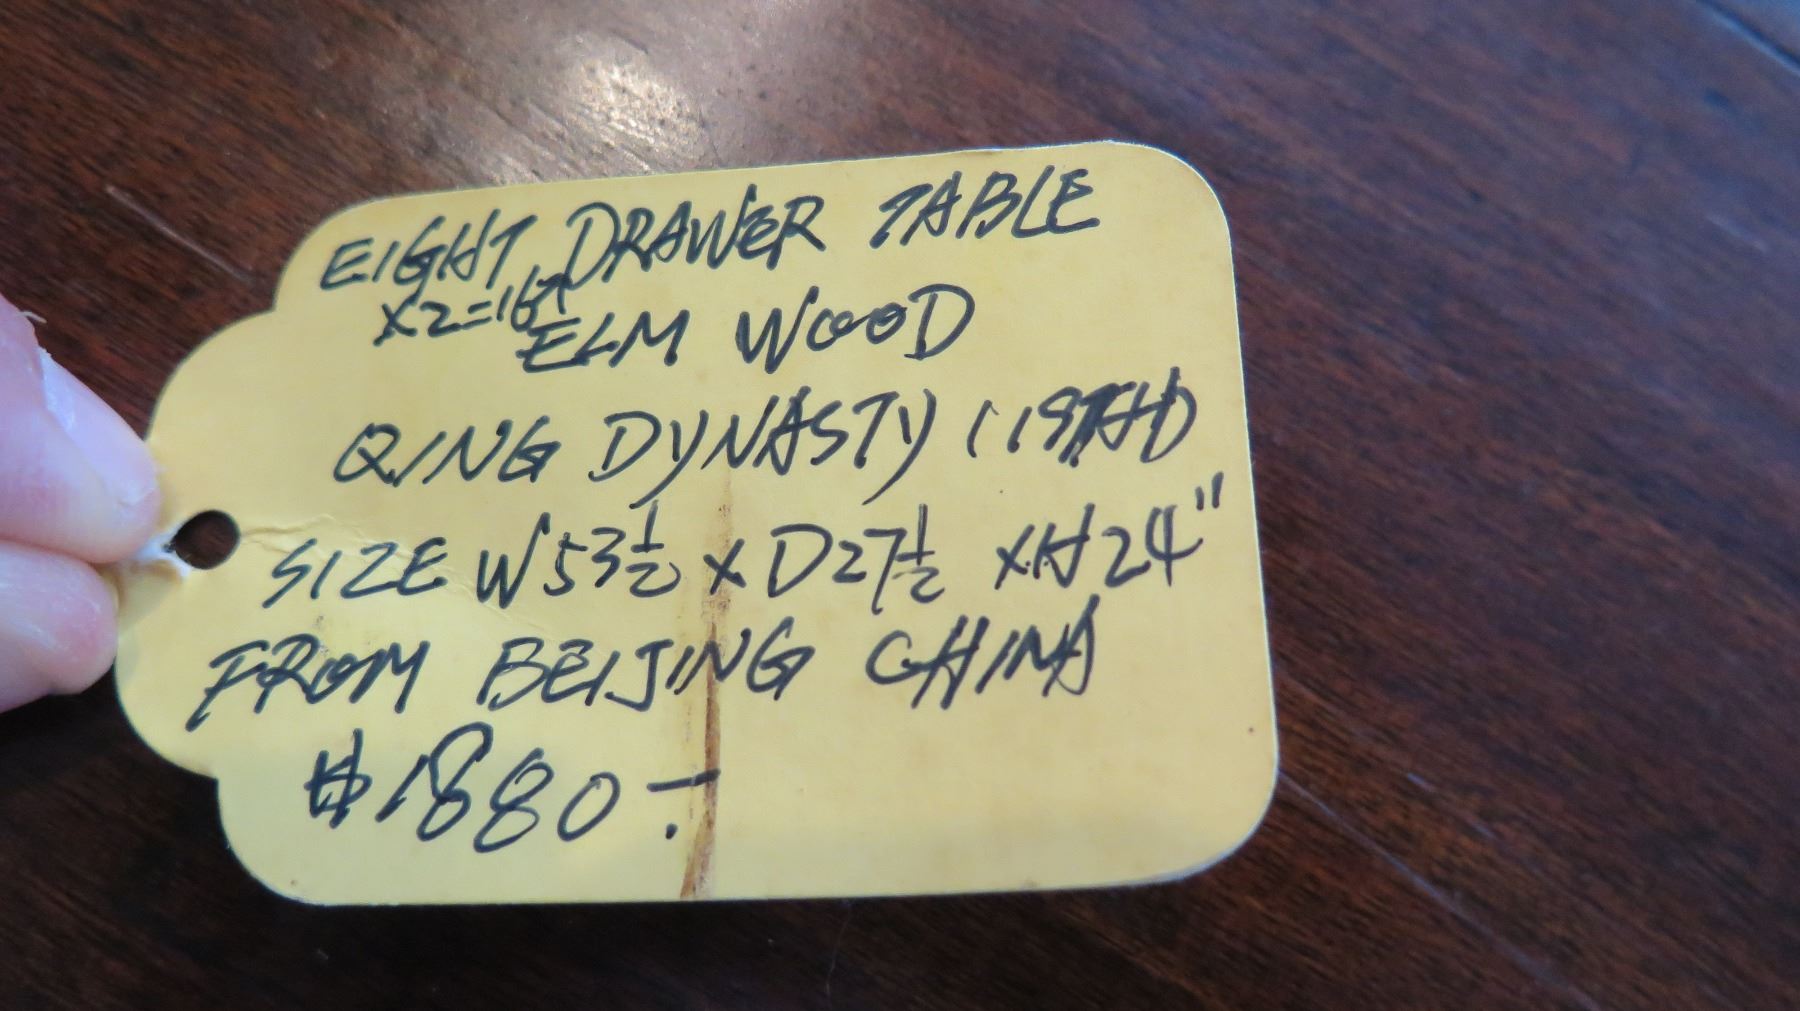 EIGHT DRAWER TABLE
X2=16
ELM WOOD
QING DYNASTY (19TH)
SIZE W53½ x D27½ xH24"
FROM BEIJING CHINA
$1880.-